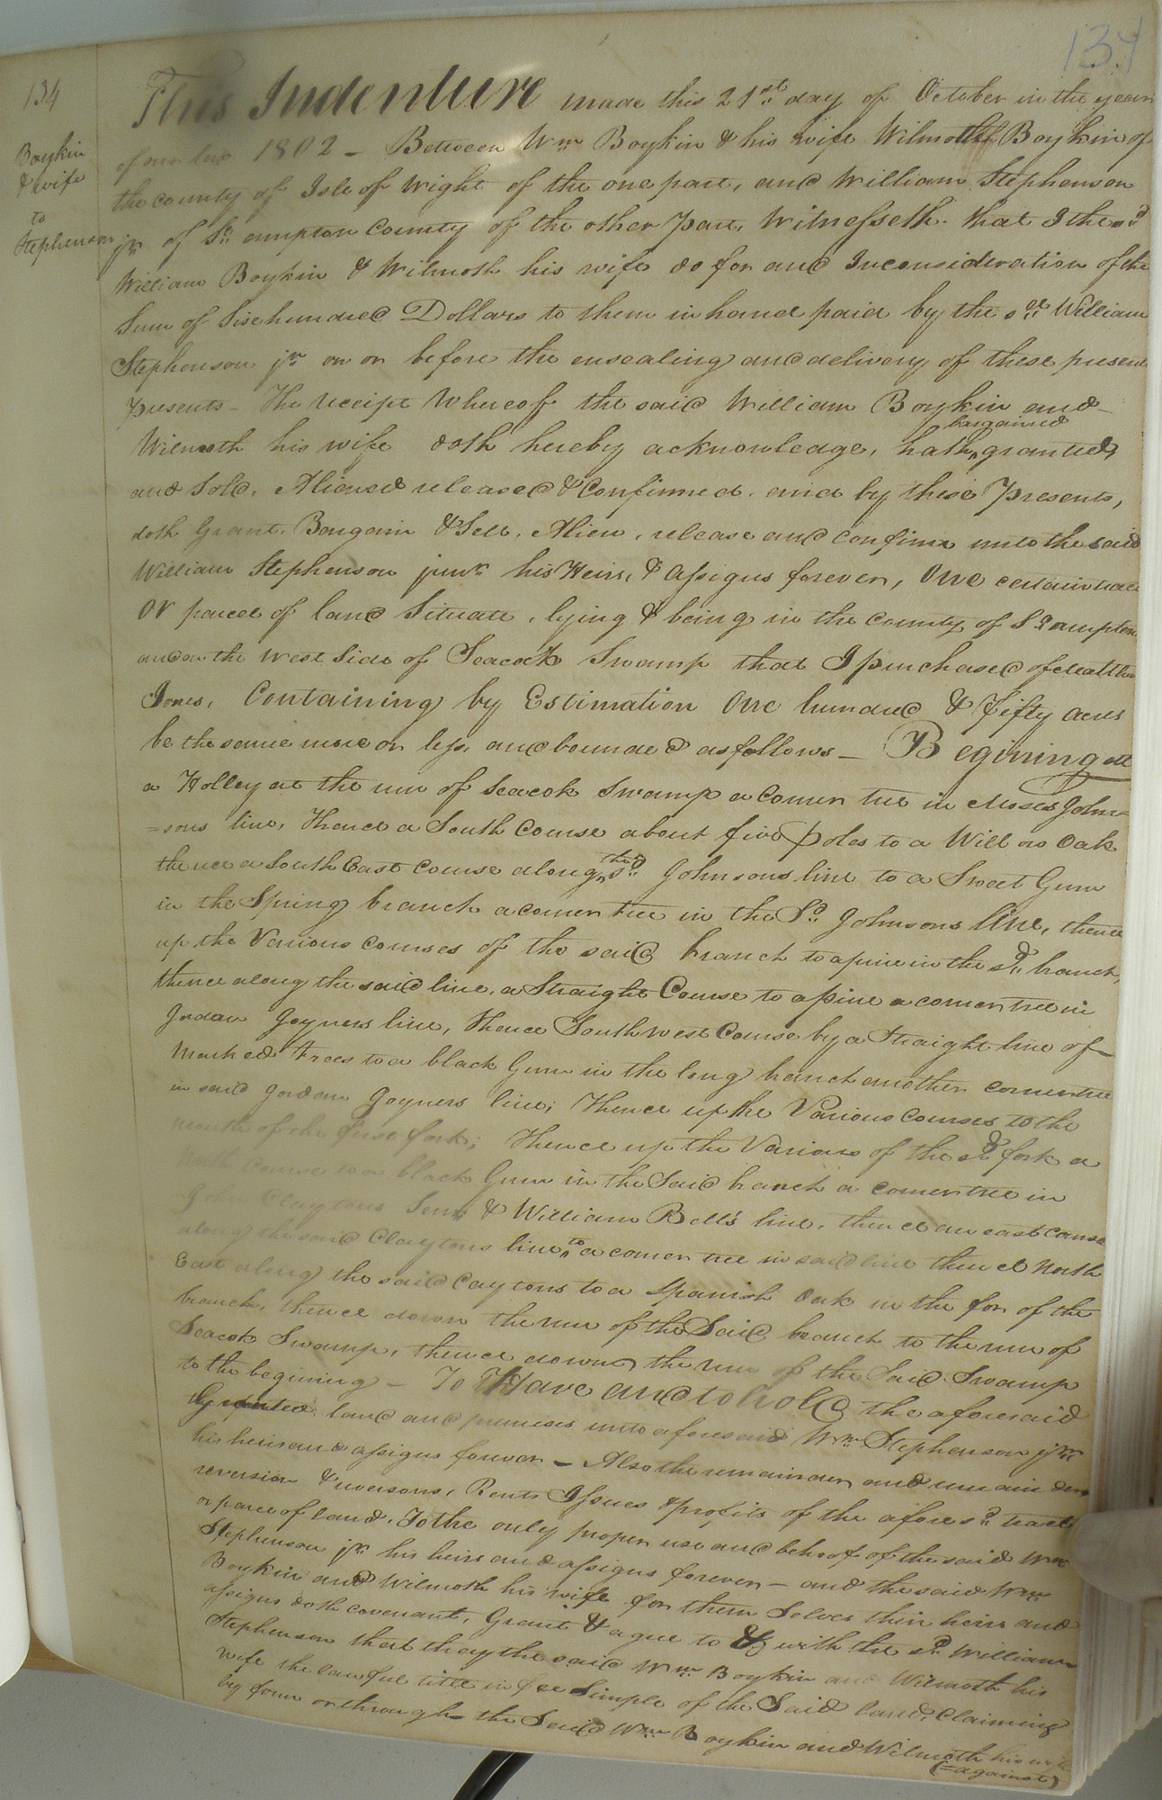 134
134
Boykin
& wife
to
Stephenson
This Indenture made this 21st day of October in the year
of our lord 1802 – Between Wm Boykin & his wife Wilmoth Boykin of
the county of Isle of Wight of the one part, and William Stephenson
jr of So ampton County of the other part, Witnesseth. that I the sd
William Boykin & Wilmoth his wife do for and Inconsideration of the
Sum of Six hundred Dollars to them in hand paid by the sd William
Stephenson jr on or before the ensealing and delivery of these present
presents – The receipt Whereof the said William Boykin and –
bargained
Wilmoth his wife doth hereby acknowledge, hath ^ granted,
and Sold, Aliened released & Confirmed. and by these Presents,
doth Grant, Bargain & Sell, Alien, release and confirm unto the said
William Stephenson junr his Heirs, & assigns forever, One certain tract
Or parcel of land Situate, lying & being in the County of So ampton
and on the West Side of Seacock Swamp that I purchased of Matthew
Jones, Containing by Estimation One hundred & Fifty acres
be the same more or less, and bounded as follows – Begining att
a Holley at the run of Seacok Swamp a Corner tree in Moses John–
=sons line, Thence a South Course about five poles to a Willow Oak
thence a South East course along ^ the sd Johnsons line to a Sweet Gum
in the Spring branch a corner tree in the Sd Johnsons line, thence
up the Various courses of the said branch to a pine in the sd branch,
thence along the said line, a Straight Course to a pine a corner tree in
Jordan Joyners line, Thence South west Course by a Straight line of –
Marked trees to a black Gum in the long branch another corner tree
in said Jordan Joyners line; Thence up the Various courses to the
mouth of the first fork; Thence up the Various of the sd fork a
North course to a black Gum in the Said branch a corner tree in
John Claytons Senr & William Bell's line, thence an east Course
along the said Claytons line ^ to a corner tree in said line thence North
East along the said Caytons to a Spanish Oak in the for of the
branch, thence down the run of the Said branch to the run of
Seacok Swamp, thence down the run of the Said Swamp
to the begining – To Have and to hold the aforesaid
Granted land and premises unto aforesaid Wm Stephenson jr
his heirs and assigns forever – Also the remainder and remainders
reversion & reversions, Rents Issues & profits of the afore sd tract
or parcel of land, To the only proper use and behoof of the said Wm
Stephenson jr his heirs and assigns forever – and the said Wm
Boykin and Wilmoth his wife for them Selves their heirs and
assigns doth covenant, Grant & agree to & with the sd William
Stephenson that they the said Wm Boykin and Wilmoth his
wife the lawful title in fee Simple of the Said land, Claiming
by from or through the Said Wm Boykin and Wilmoth his wife
(=against)